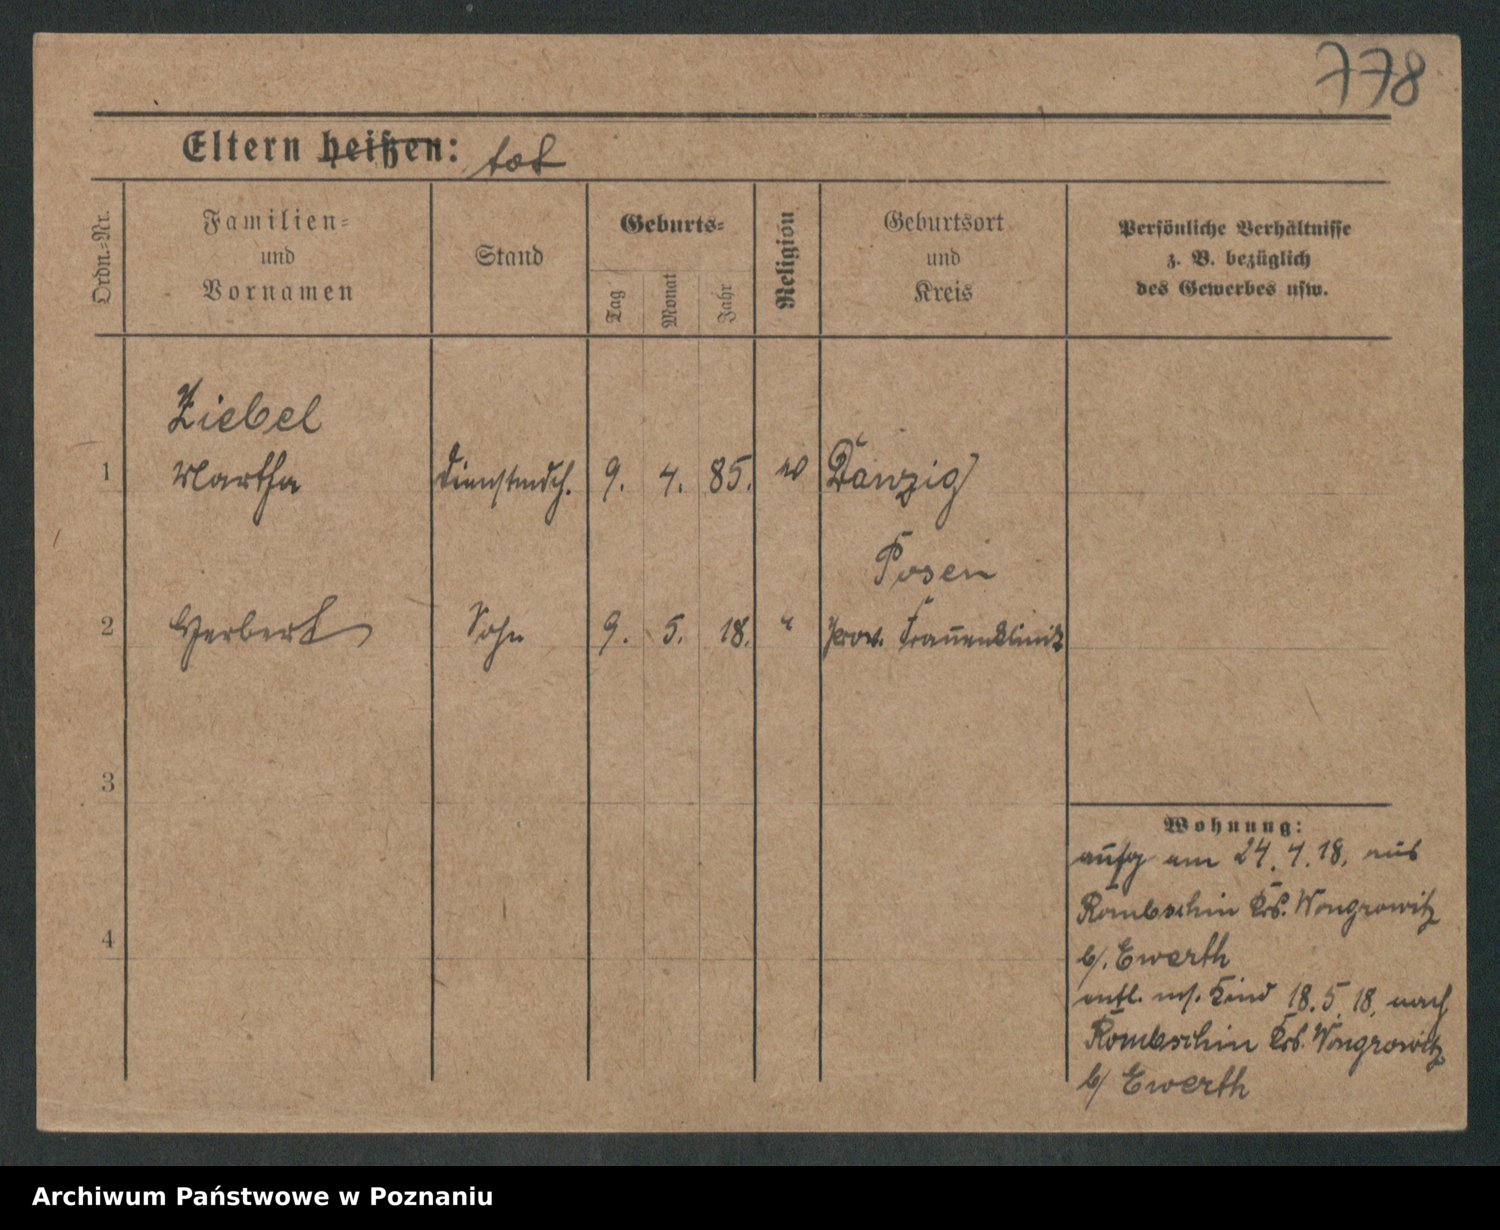 778
Eltern heißen: tot
Ordn.-Nr.
Familien-
und
Vornamen
Stand
Geburts-
Tag
Monat
Jahr
Religion
Geburtsort
und
Kreis
Persönliche Verhältnisse
z. B. bezüglich
des Gewerbes usw.
Ziebel
1 Martha Dienstmdch. 9. 4. 85. ev Danzig
Posen
2 Herbert Sohn 9. 5. 18. " Prov. Frauenklinik
3
4
Wohnung:
aufg am 24. 4. 18. aus
Rombschin Krs. Wongrowitz
b/. Ewerth
entl. m/. Kind 18. 5. 18. nach
Rombschin Krs. Wongrowitz
b/ Ewerth
Archiwum Państwowe w Poznaniu